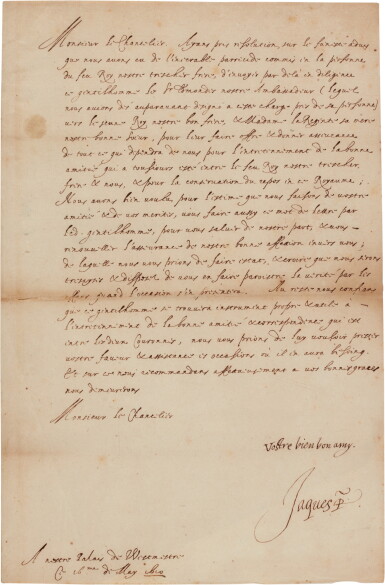 Monsieur le Chancelier. Ayans pris resolution, sur le funeste
que nous avons eu de l'execrable parricide commis en la personne
du feu Roy nostre trescher frere, d'envoyer par delà en diligence
ce gentilhomme le Sr nostre Ambassadeur (lequel
nous avons dès auparavant en ceste charge pres de sa personne)
vers le jeune Roy nostre bon frere, & Madame la Regine sa mere
nostre bonne soeur, pour leur faire offre & donner asseurance
de tout ce qui dependra de nous pour l'entretenement de la bonne
amitie qui a tousjours esté entre le feu Roy nostre trescher
frere & nous, & pour la conservation du repos en ce Royaume;
Nous avons bien voulu, pour l'estime que nous faisons de vostre
amitie & de vos merites, vous faire aussy ce mot de lettre par
led. gentilhomme, pour vous saluer de nostre part, & vous
renouveller l'asseurance de nostre bonne affection envers vous;
de laquelle nous vous prions de faire estat, & croire que nous serons
tousjours disposé de vous en faire paroistre la verité par les
effects, quand l'occasion s'en presentera. Au reste nous confians
que ce gentilhomme se trouvera instrument propre & utile à
l'entretenement de la bonne amitie & correspondence qui est
entre les deux Couronnes, nous vous prions de luy vouloir prester
vostre faveur & assistence es occasions où il en aura besoing.
Et sur ce nous recommandans affectueusement a vos bonnes graces
nous demeurerons
Monsieur le Chancelier
Vostre bien bon amy.
Jaques R
A nostre Palais de Westmestre
Ce 16me de May 1610